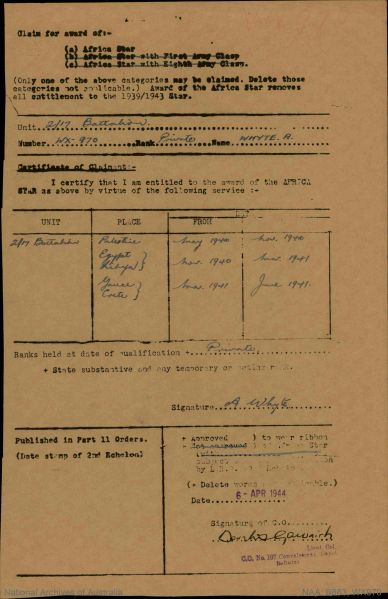 Claim for award of:-
(a) Africa Star
(b) Africa Star with First Army Clasp
(c) Africa Star with Eighth Army Clasp.
(Only one of the above categories may be claimed. Delete those
categories not applicable.) Award of the Africa Star removes
all entitlement to the 1939/1943 Star.
Unit 2/17 Battalion
Number Rank Private Name WHYTE. A.
Certificate of Claimant:-
I certify that I am entitled to the award of the AFRICA
STAR as above by virtue of the following service :-
UNIT PLACE FROM
2/17 Battalion Palestine May 1940 Nov. 1940
Egypt
Libya } Nov. 1940 Mar. 1941
Greece
Crete } Mar. 1941 June 1941.
Ranks held at date of qualification + Private
+ State substantive and any temporary or acting rank.
Signature A Whyte
Published in Part 11 Orders.
(Date stamp of 2nd Echelon)
+ Approved ) to wear ribbon
Star
by
(+ Delete words
Date 6 - APR 1944
Signature of C.O.
Lieut Col.
C.O. No. 107 Convalescent Depot
National Archives of Australia
NAA: B883,